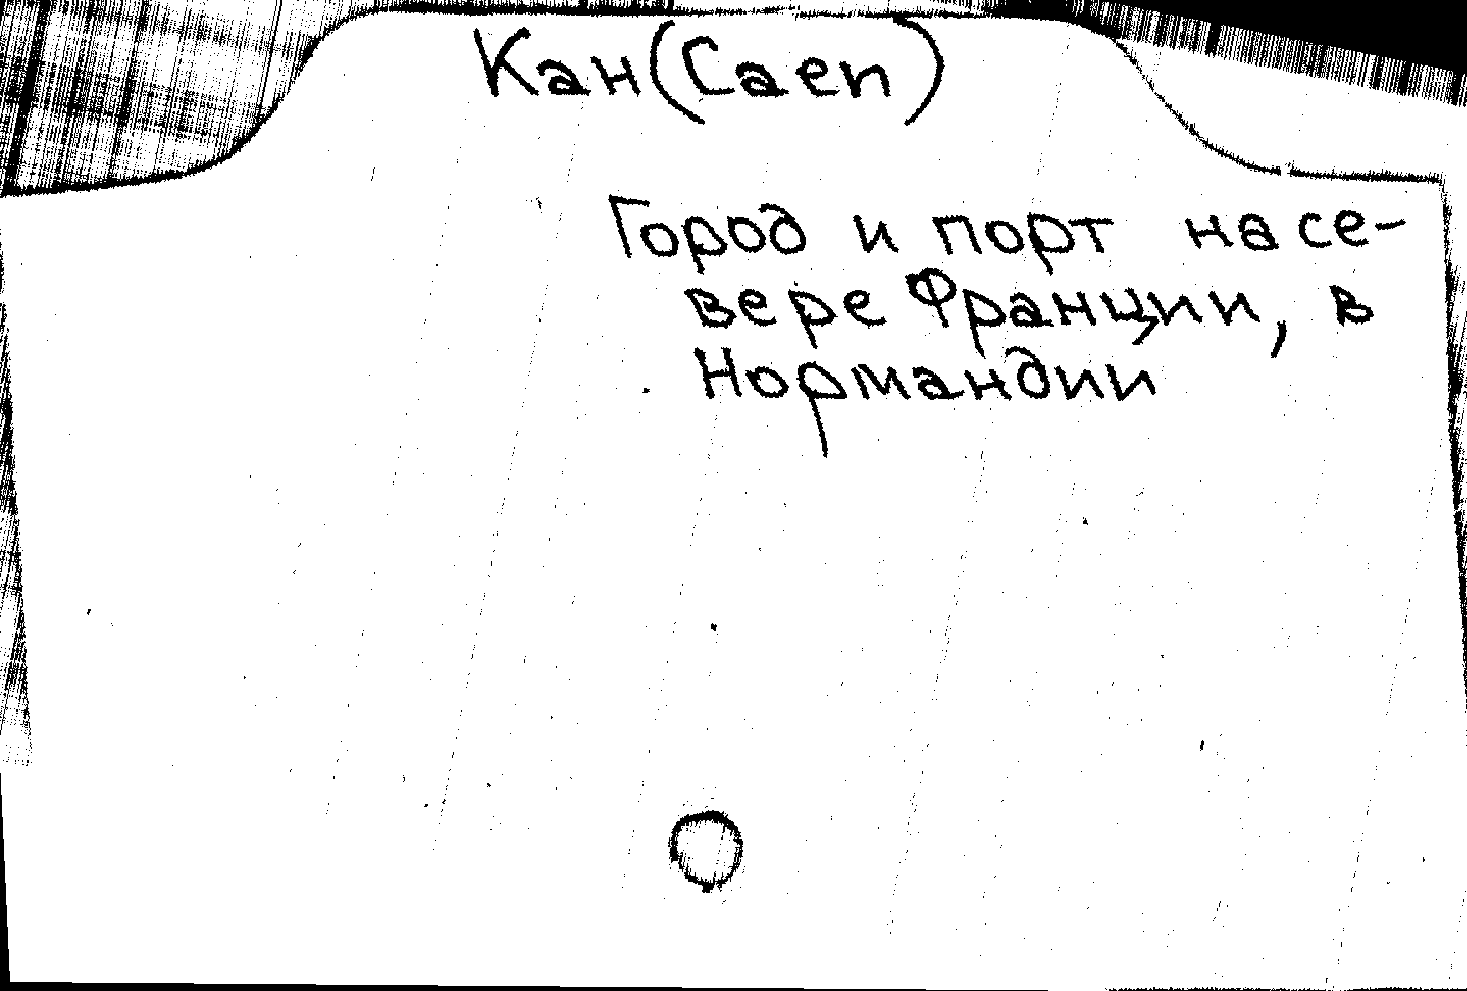 Кан (Caen)
Город и порт на се-
вере Франции, в
Нормандии